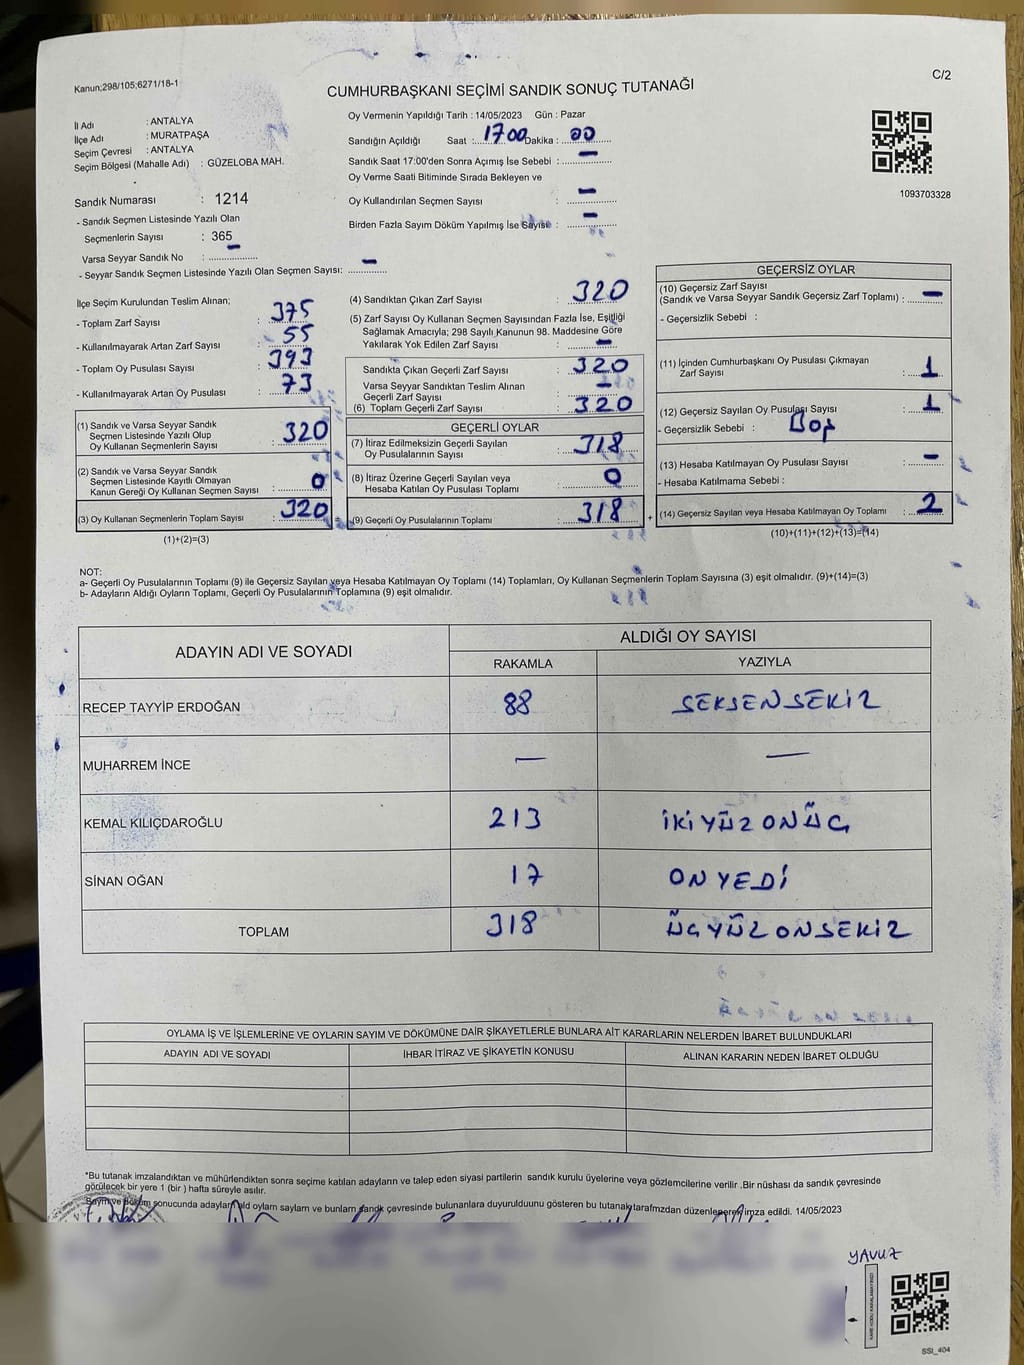 Kanun;298/105;6271/18-1
C/2
CUMHURBAŞKANI SEÇİMİ SANDIK SONUÇ TUTANAĞI
İl Adı : ANTALYA
İlçe Adı : MURATPAŞA
Seçim Çevresi : ANTALYA
Seçim Bölgesi (Mahalle Adı) : GÜZELOBA MAH.
Sandık Numarası : 1214
- Sandık Seçmen Listesinde Yazılı Olan
Seçmenlerin Sayısı : 365
Varsa Seyyar Sandık No : –
- Seyyar Sandık Seçmen Listesinde Yazılı Olan Seçmen Sayısı: –
Oy Vermenin Yapıldığı Tarih : 14/05/2023 Gün : Pazar
Sandığın Açıldığı Saat : 1700 Dakika : 00
Sandık Saat 17:00'den Sonra Açımış İse Sebebi : –
Oy Verme Saati Bitiminde Sırada Bekleyen ve
Oy Kullandırılan Seçmen Sayısı : –
Birden Fazla Sayım Döküm Yapılmış İse Sayısı : –
1093703328
İlçe Seçim Kurulundan Teslim Alınan;
- Toplam Zarf Sayısı : 375
- Kullanılmayarak Artan Zarf Sayısı : 55
- Toplam Oy Pusulası Sayısı : 393
- Kullanılmayarak Artan Oy Pusulası : 73
(1) Sandık ve Varsa Seyyar Sandık
Seçmen Listesinde Yazılı Olup
Oy Kullanan Seçmenlerin Sayısı : 320
(2) Sandık ve Varsa Seyyar Sandık
Seçmen Listesinde Kayıtlı Olmayan
Kanun Gereği Oy Kullanan Seçmen Sayısı : 0
(3) Oy Kullanan Seçmenlerin Toplam Sayısı : 320
(1)+(2)=(3)
(4) Sandıktan Çıkan Zarf Sayısı : 320
(5) Zarf Sayısı Oy Kullanan Seçmen Sayısından Fazla İse, Eşitliği
Sağlamak Amacıyla; 298 Sayılı Kanunun 98. Maddesine Göre
Yakılarak Yok Edilen Zarf Sayısı : –
Sandıkta Çıkan Geçerli Zarf Sayısı : 320
Varsa Seyyar Sandıktan Teslim Alınan
Geçerli Zarf Sayısı : –
(6) Toplam Geçerli Zarf Sayısı : 320
GEÇERLİ OYLAR
(7) İtiraz Edilmeksizin Geçerli Sayılan
Oy Pusulalarının Sayısı : 318
(8) İtiraz Üzerine Geçerli Sayılan veya
Hesaba Katılan Oy Pusulası Toplamı : 0
(9) Geçerli Oy Pusulalarının Toplamı : 318
GEÇERSİZ OYLAR
(10) Geçersiz Zarf Sayısı
(Sandık ve Varsa Seyyar Sandık Geçersiz Zarf Toplamı) : –
- Geçersizlik Sebebi :
(11) İçinden Cumhurbaşkanı Oy Pusulası Çıkmayan
Zarf Sayısı : 1
(12) Geçersiz Sayılan Oy Pusulası Sayısı : 1
- Geçersizlik Sebebi : Boş
(13) Hesaba Katılmayan Oy Pusulası Sayısı : –
- Hesaba Katılmama Sebebi :
+ (14) Geçersiz Sayılan veya Hesaba Katılmayan Oy Toplamı : 2
(10)+(11)+(12)+(13)=(14)
NOT:
a- Geçerli Oy Pusulalarının Toplamı (9) ile Geçersiz Sayılan veya Hesaba Katılmayan Oy Toplamı (14) Toplamları, Oy Kullanan Seçmenlerin Toplam Sayısına (3) eşit olmalıdır. (9)+(14)=(3)
b- Adayların Aldığı Oyların Toplamı, Geçerli Oy Pusulalarının Toplamına (9) eşit olmalıdır.
ADAYIN ADI VE SOYADI ALDIĞI OY SAYISI
RAKAMLA YAZIYLA
RECEP TAYYİP ERDOĞAN 88 SEKSENSEKİZ
MUHARREM İNCE — —
KEMAL KILIÇDAROĞLU 213 İKİYÜZONÜÇ
SİNAN OĞAN 17 ONYEDİ
TOPLAM 318 ÜÇYÜZONSEKİZ
OYLAMA İŞ VE İŞLEMLERİNE VE OYLARIN SAYIM VE DÖKÜMÜNE DAİR ŞİKAYETLERLE BUNLARA AİT KARARLARIN NELERDEN İBARET BULUNDUKLARI
ADAYIN ADI VE SOYADI İHBAR İTİRAZ VE ŞİKAYETİN KONUSU ALINAN KARARIN NEDEN İBARET OLDUĞU
*Bu tutanak imzalandıktan ve mühürlendikten sonra seçime katılan adayların ve talep eden siyasi partilerin sandık kurulu üyelerine veya gözlemcilerine verilir .Bir nüshası da sandık çevresinde
görülecek bir yere 1 (bir ) hafta süreyle asılır.
Sayım ve döküm sonucunda adayların oyların sayları ve bunların sandık çevresinde bulunanlara duyurulduunu gösteren bu tutanak tarafmzdan düzenlenerek imza edildi. 14/05/2023
YAVUZ
KARE KODU KARALAMAYINIZ!
SSt_404